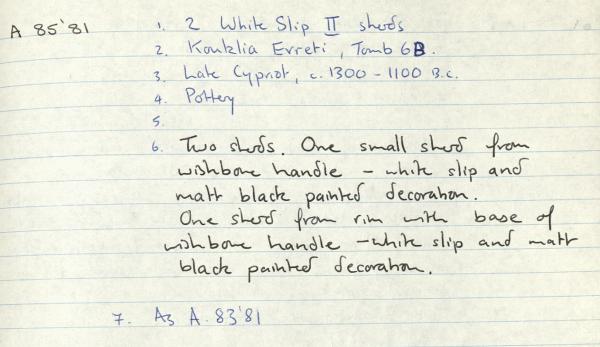 A 85'81
1. 2 White Slip II sherds
2. Kouklia Evreti, Tomb 6B.
3. Late Cypriot, c. 1300 - 1100 B.C.
4. Pottery
5.
6. Two sherds. One small sherd from
wishbone handle - white slip and
matt black painted decoration.
One sherd from rim with base of
wishbone handle - white slip and matt
black painted decoration.
7. As A. 83'81